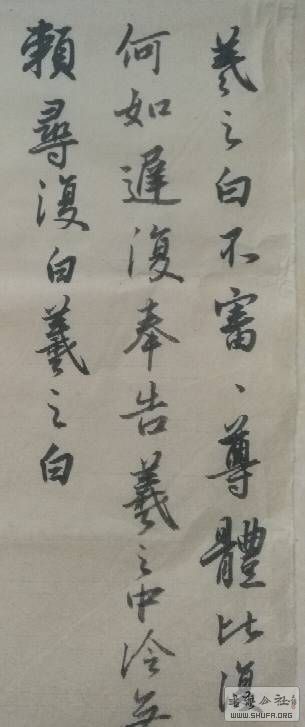 羲之白不審、尊體比復
何如遲復奉告羲之中冷無
賴尋復白羲之白
WWW.SHUFA.ORG